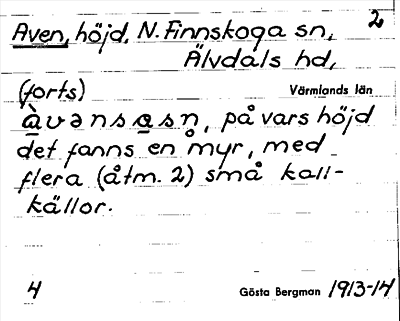 2
Aven, höjd, N. Finnskoga sn,
Älvdals hd,
(forts) Värmlands län
àvənsəsn, på vars höjd
det fanns en myr, med
flera (åtm. 2) små kall-
källor.
4 Gösta Bergman 1913-14